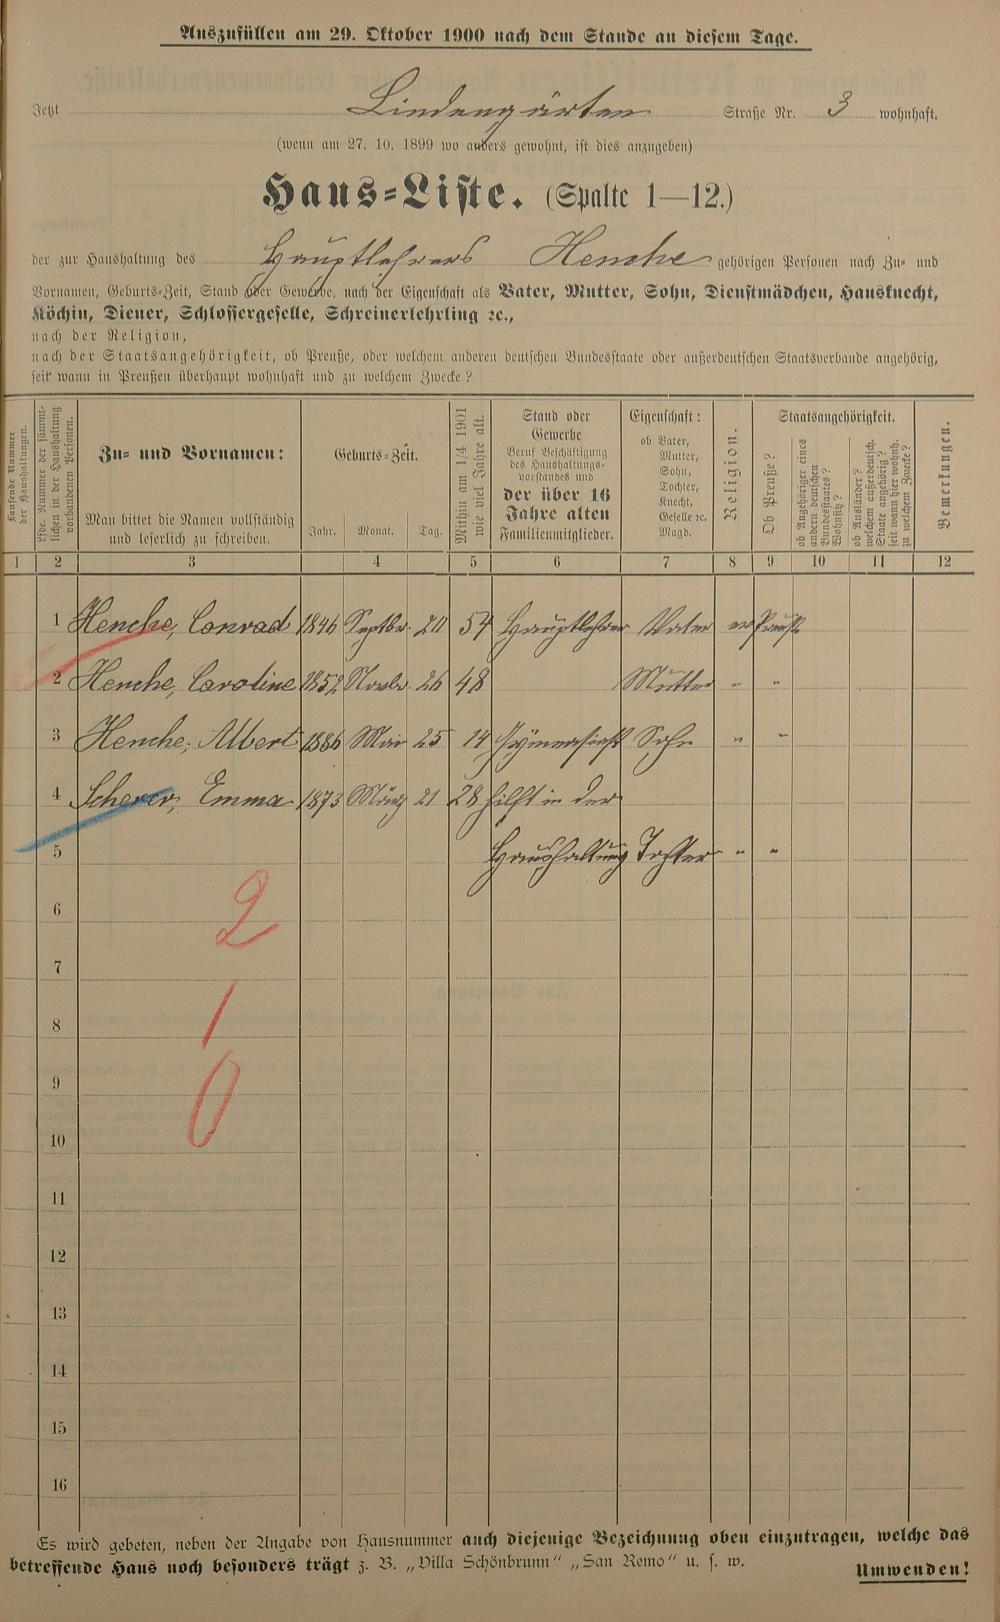 Auszufüllen am 29. Oktober 1900 nach dem Stande an diesem Tage.
Jetzt Lindengärten Straße Nr. 3 wohnhaft.
(wenn am 27. 10. 1899 wo anders gewohnt, ist dies anzugeben)
Haus-Liste. (Spalte 1—12.)
der zur Haushaltung des Hauptlehrers Henche gehörigen Personen nach Zu- und
Vornamen, Geburts-Zeit, Stand oder Gewerbe, nach der Eigenschaft als Vater, Mutter, Sohn, Dienstmädchen, Hausknecht,
Köchin, Diener, Schlossergeselle, Schreinerlehrling ꝛc.,
nach der Religion,
nach der Staatsangehörigkeit, ob Preuße, oder welchem anderen deutschen Bundesstaate oder außerdeutschen Staatsverbande angehörig,
seit wann in Preußen überhaupt wohnhaft und zu welchem Zwecke?
Laufende Nummer
der Haushaltungen.
Lfde. Nummer der sämmt-
lichen in der Haushaltung
vorhandenen Personen.
Zu- und Vornamen:
Man bittet die Namen vollständig
und leserlich zu schreiben.
Geburts-Zeit.
Jahr. Monat. Tag.
Mithin am 1/4 1901
wie viel Jahre alt.
Stand oder
Gewerbe
Beruf Beschäftigung
des Haushaltungs-
vorstandes und
der über 16
Jahre alten
Familienmitglieder.
Eigenschaft:
ob Vater,
Mutter,
Sohn,
Tochter,
Knecht,
Geselle ꝛc.
Magd.
Religion.
Staatsangehörigkeit.
Ob Preuße?
ob Angehöriger eines
andern deutschen
Bundesstaates?
Wohnsitz?
ob Ausländer?
welchem außerdeutsch.
Staate angehörig?
seit wann hier wohnh.
zu welchem Zwecke?
Bemerkungen.
1 2 3 4 5 6 7 8 9 10 11 12
1 Henche, Conrad 1846 Septbr. 20 54 Hauptlehrer Vater ev Preuße
2 Henche, Caroline 1852 Novbr. 26 48 Mutter " "
3 Henche, Albert 1886 Mai 25 14 Gymnasiast Sohn " "
4 Scherer, Emma 1873 März 21 28 hilft in der
5 Haushaltung Tochter " "
6
2
7
8
1
9
0
10
11
12
13
14
15
16
Es wird gebeten, neben der Angabe von Hausnummer auch diejenige Bezeichnung oben einzutragen, welche das
betreffende Haus noch besonders trägt z. B. „Villa Schönbrunn“ „San Remo“ u. s. w.
Umwenden!